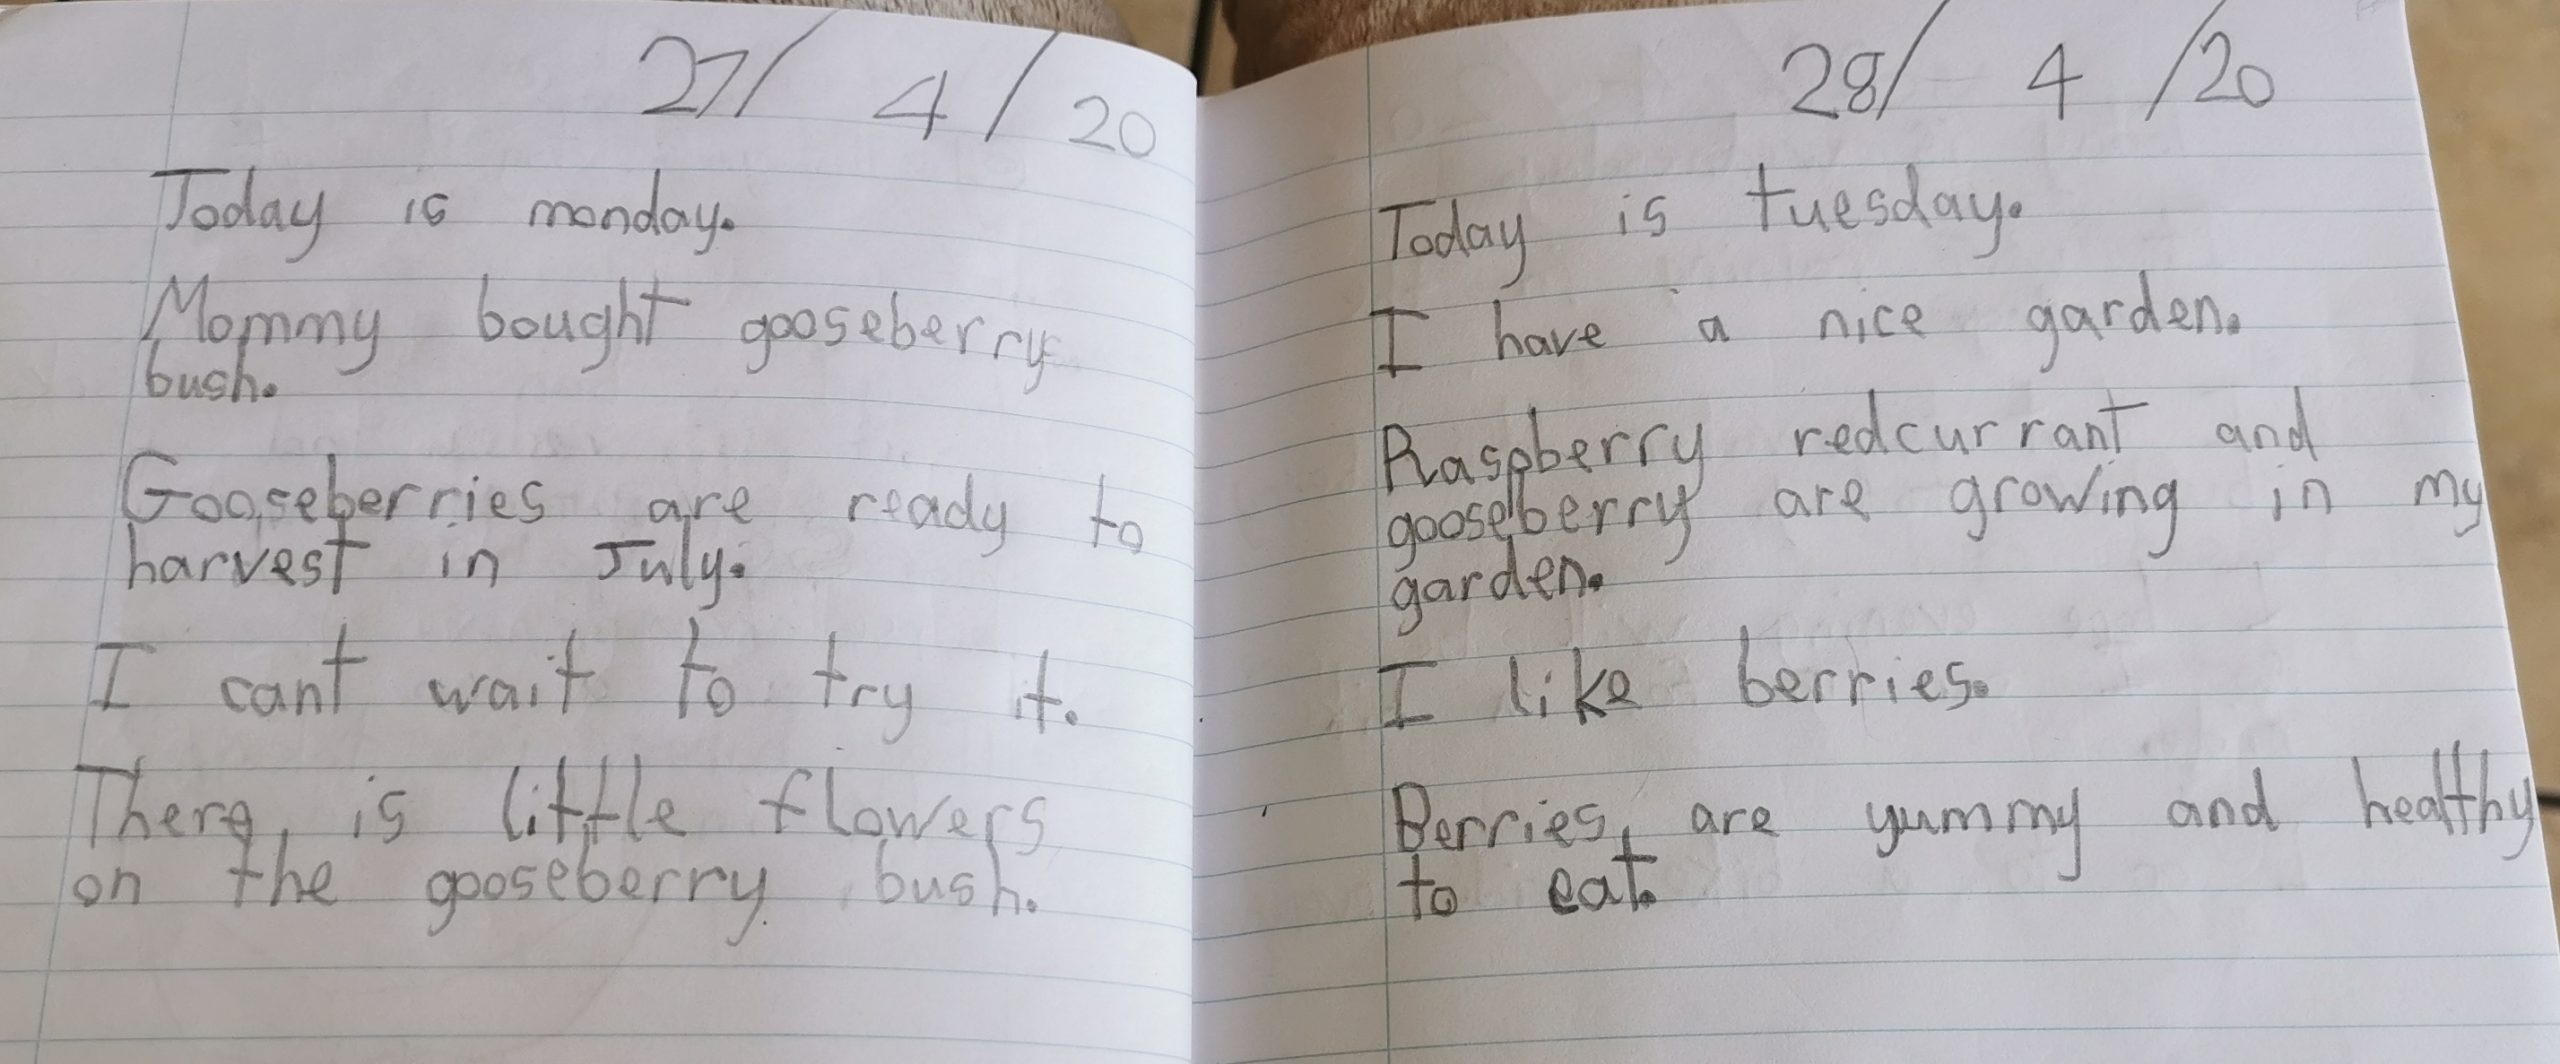 27/ 4/ 20
Today is monday.
Mommy bought gooseberry
bush.
Gooseberries are ready to
harvest in July.
I cant wait to try it.
There is little flowers
on the gooseberry bush.
28/ 4 /20
Today is tuesday.
I have a nice garden.
Raspberry redcurrant and
gooseberry are growing in my
garden.
I like berries.
Berries are yummy and healthy
to eat.